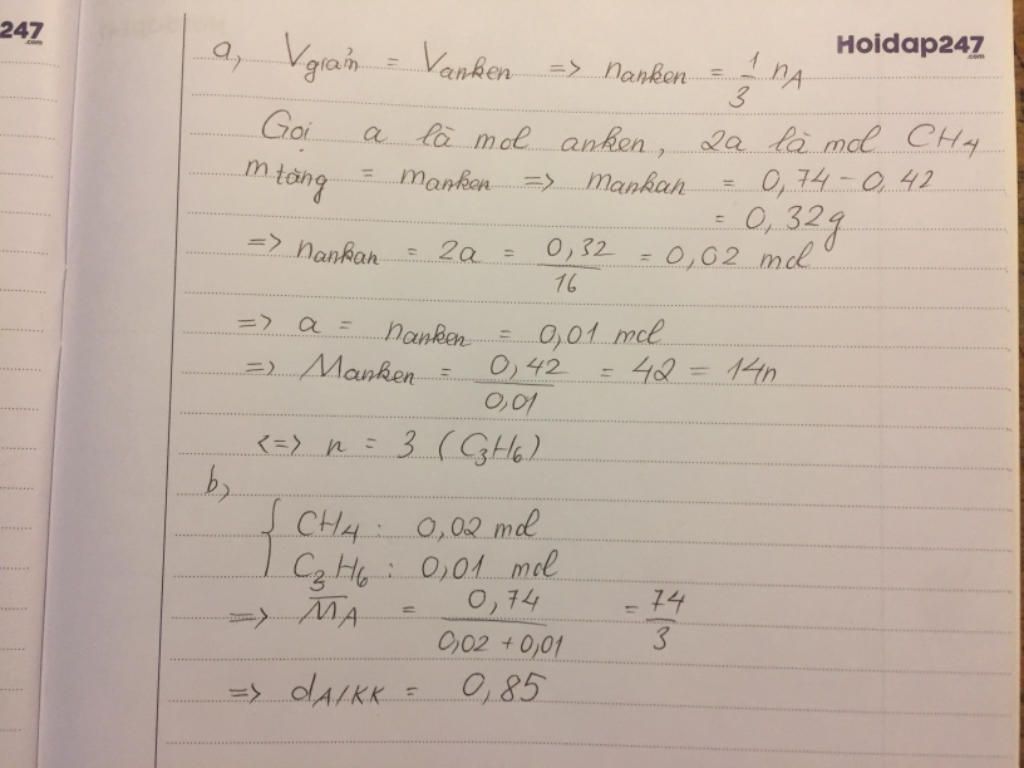 247
.com
Hoidap247
.com
a, Vgiảm = Vanken => nanken = 1/3 nA
Gọi a là mol anken, 2a là mol CH4
m tăng = manken => mankan = 0,74 - 0,42
= 0,32g
=> nankan = 2a = 0,32/16 = 0,02 mol
=> a = nanken = 0,01 mol
=> Manken = 0,42/0,01 = 42 = 14n
<=> n = 3 (C3H6)
b,
{ CH4 : 0,02 mol
C3H6 : 0,01 mol
=> M̅A = 0,74/(0,02 + 0,01) = 74/3
=> dA/KK = 0,85